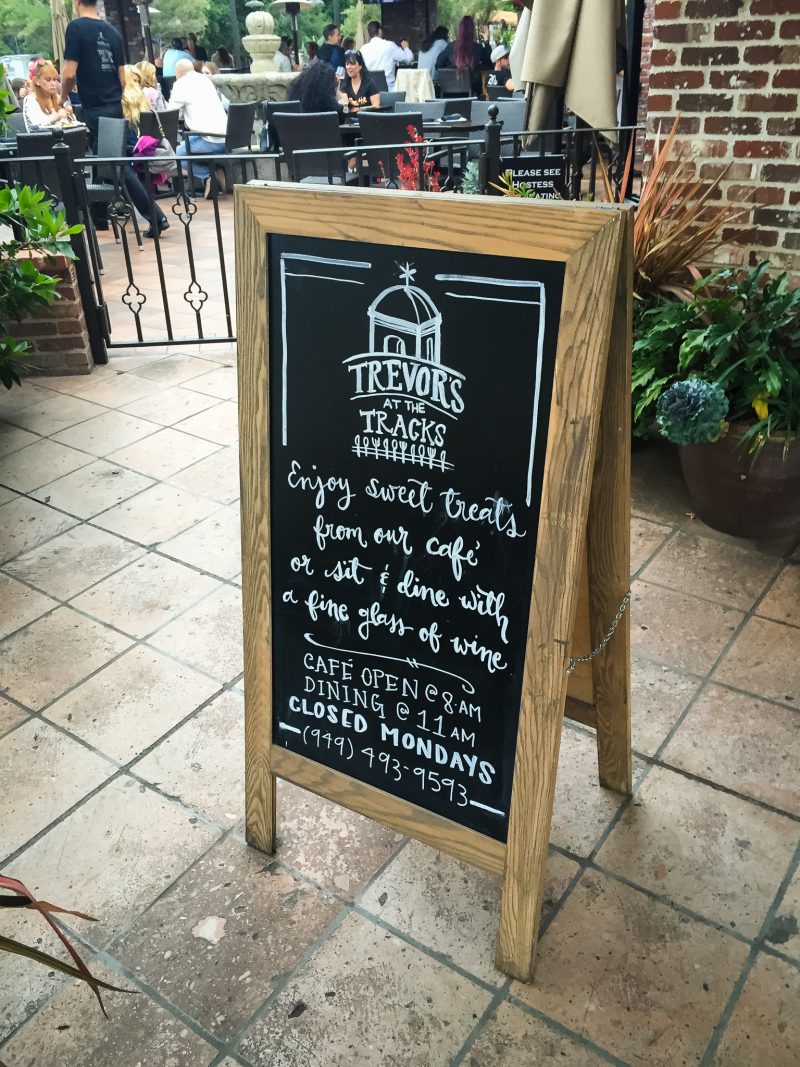 PLEASE SEE
HOSTESS
TREVOR'S
AT THE
TRACKS
Enjoy sweet treats
from our café
or sit & dine with
a fine glass of wine
CAFÉ OPEN @ 8 AM
DINING @ 11 AM
CLOSED MONDAYS
(949) 493-9593